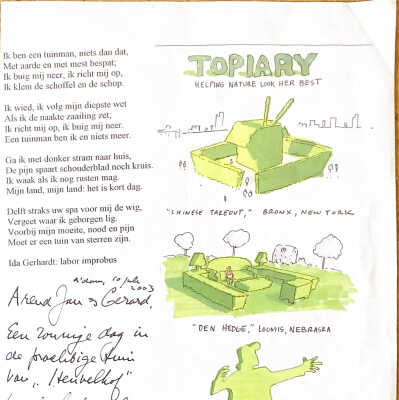 Ik ben een tuinman, niets dan dat,
Met aarde en met mest bespat;
Ik buig mij neer, ik richt mij op,
Ik klem de schoffel en de schop.
Ik wied, ik volg mijn diepste wet
Als ik de naakte zaailing zet;
Ik richt mij op, ik buig mij neer.
Een tuinman ben ik en niets meer.
Ga ik met donker stram naar huis,
De pijn spaart schouderblad noch kruis.
Ik waak als ik nog rusten mag.
Mijn land, mijn land: het is kort dag.
Delft straks uw spa voor mij de wig,
Vergeet waar ik geborgen lig.
Voorbij mijn moeite, nood en pijn
Moet er een tuin van sterren zijn.
Ida Gerhardt: labor improbus
A'dam, 10 juli 2003
Arend Jan & Gerard,
Een zonnige dag in
de prachtige tuin
van "Heuvelhof"
TOPIARY
HELPING NATURE LOOK HER BEST
"CHINESE TAKEOUT," BRONX, NEW YORK
"DEN HEDGE," LOOMIS, NEBRASKA